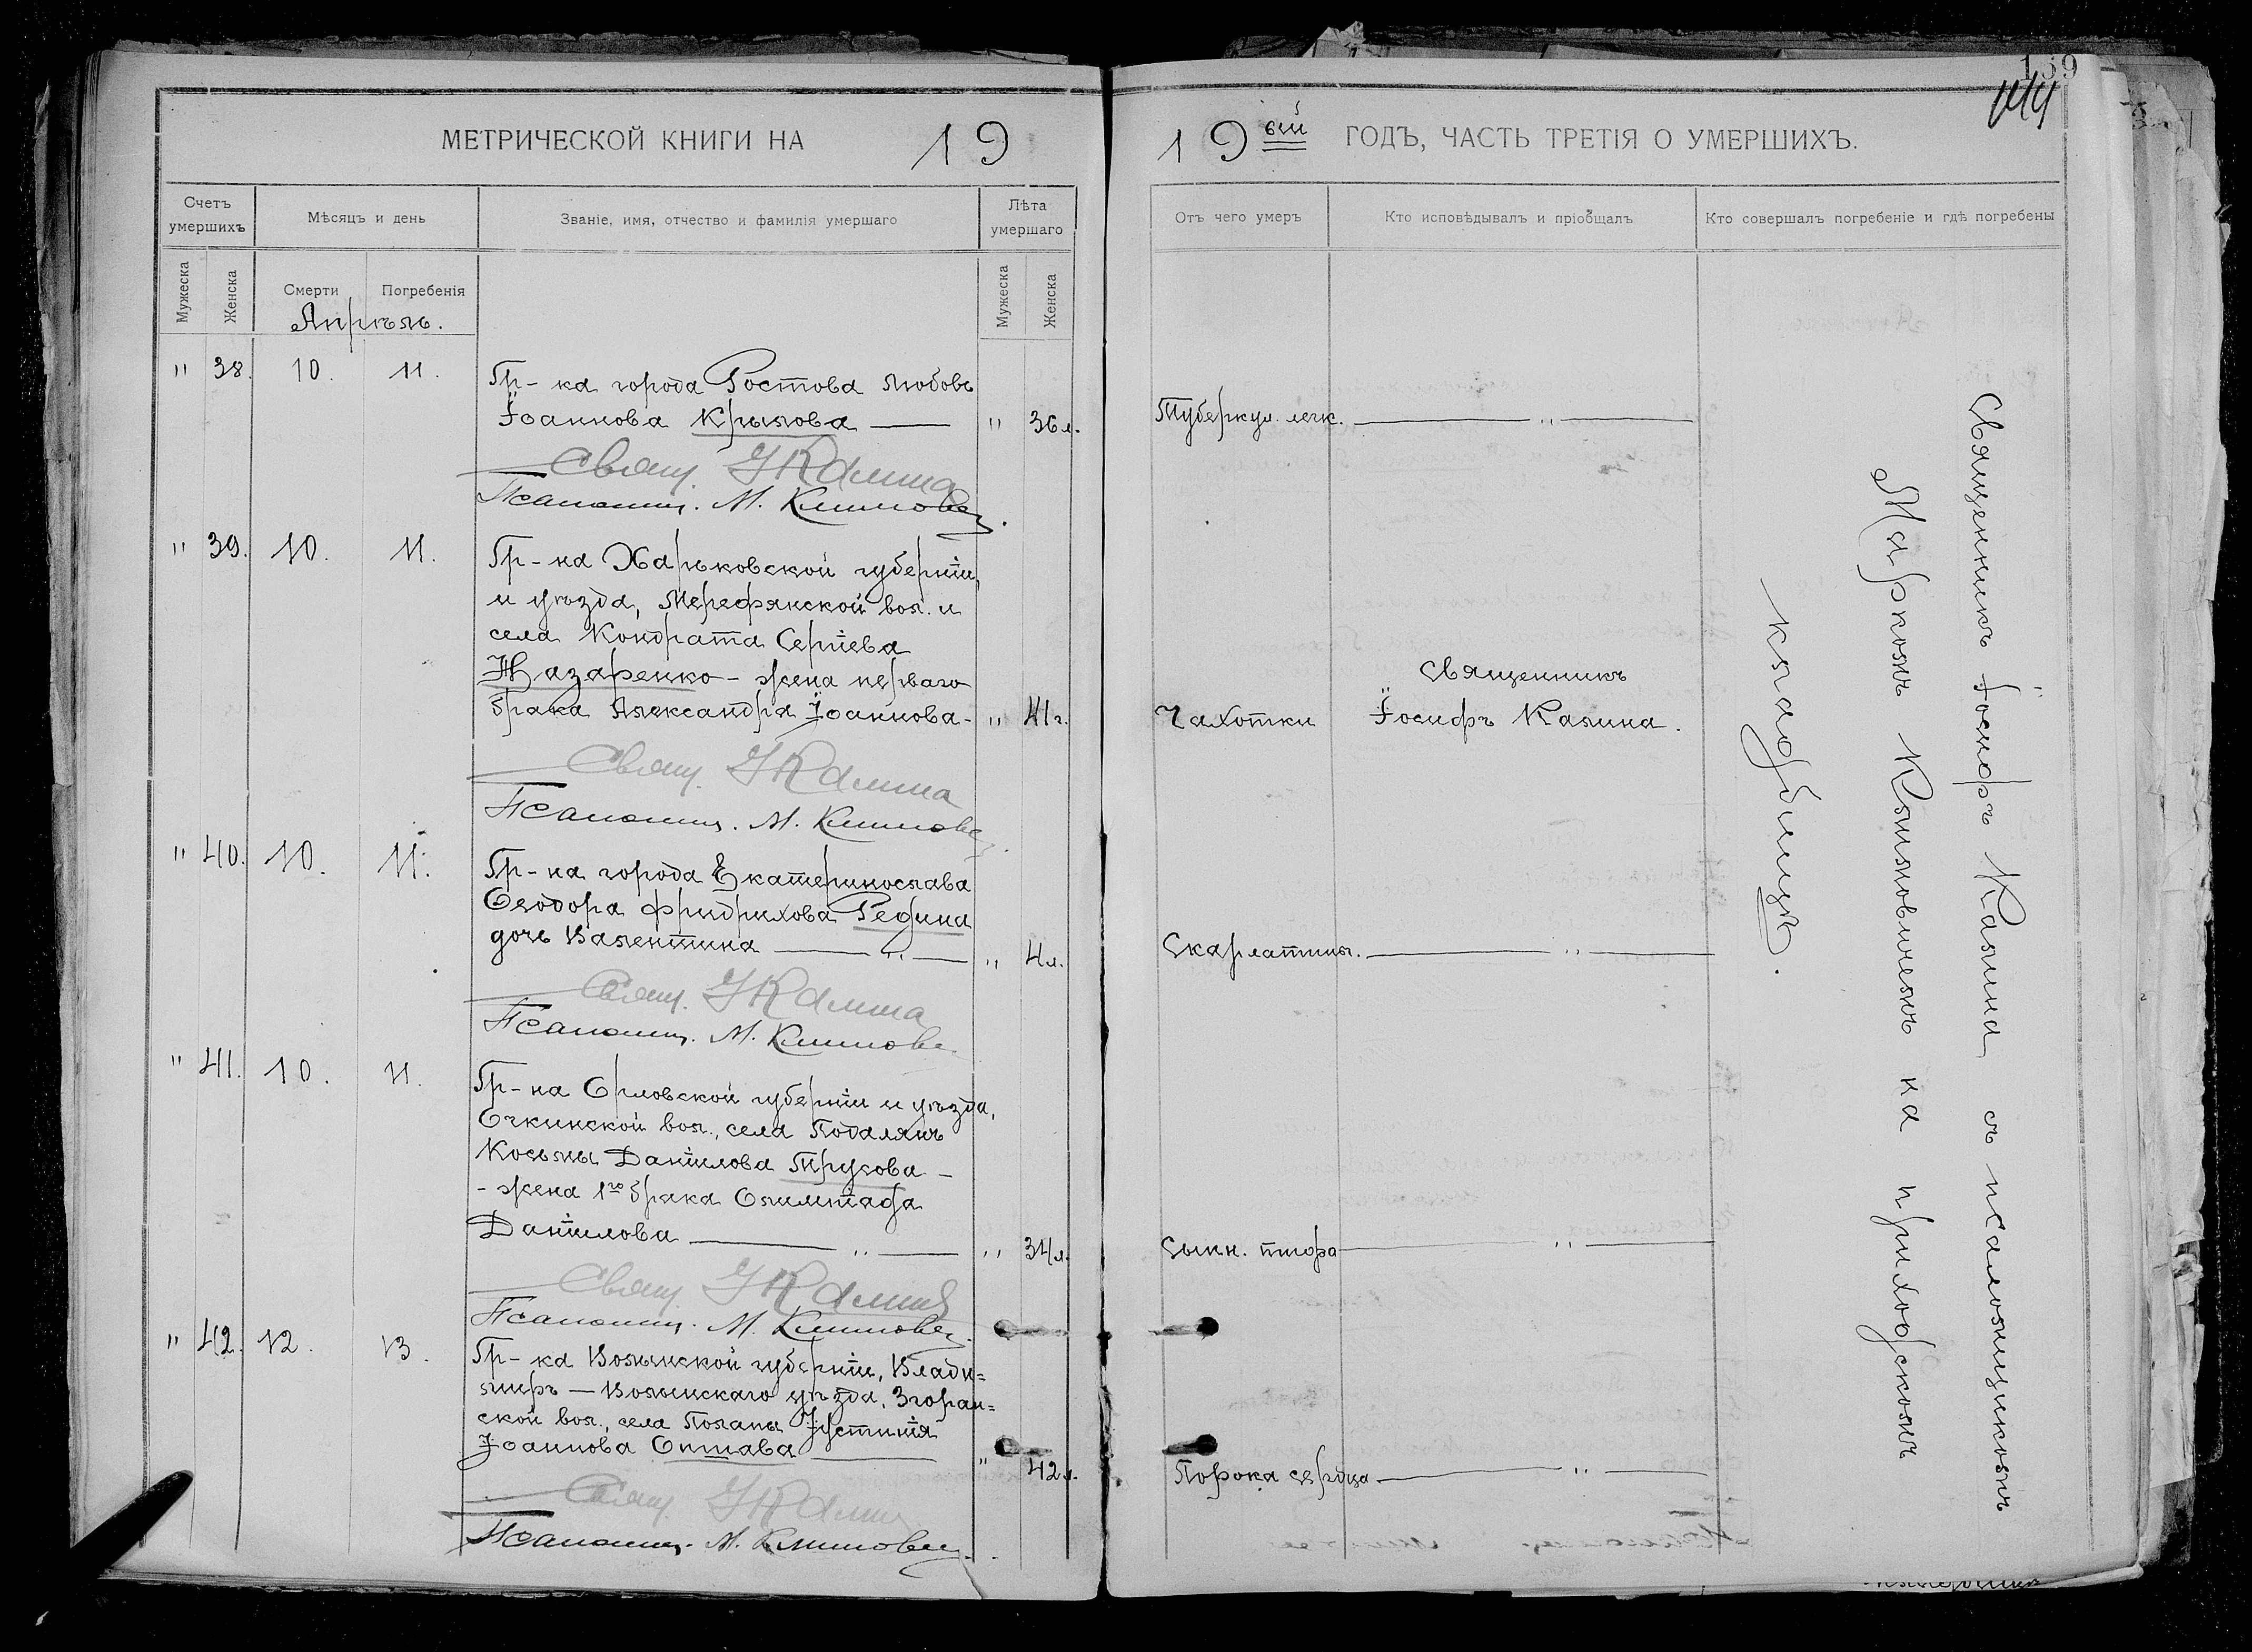 МЕТРИЧЕСКОЙ КНИГИ НА 19
Счетъ умершихъ
Мѣсяцъ и день
Званіе, имя, отчество и фамилія умершаго
Лѣта умершаго
Мужеска
Женска
Смерти
Погребенія
Мужеска
Женска
Апрѣль.
" 38. 10. 11.
Гр-ка города Ростова Любовь
Іоаннова Крылова — " 36 л.
Свящ. І Калина
Псаломщ. М. Климович
" 39. 10. 11.
Гр-на Харьковской губерніи,
и уѣзда, Мерефянской вол. и
села Кондрата Сергіева
Назаренко - жена перваго
брака Александра Іоаннова - " 41 г.
Свящ. І Калина
Псаломщ. М. Климович
" 40. 10. 11.
Гр-на города Екатеринослава
Ѳеодора Фридрихова Редина
дочь Валентина — " — " 4 л.
Свящ. І Калина
Псаломщ. М. Климович
" 41. 10. 11.
Гр-на Орловской губерніи и уѣзда,
вол., села
Косьмы Даніилова Трусова -
- жена 1го брака
Даніилова — " — " 34 л.
Свящ. І Калина
Псаломщ. М. Климович
" 42. 12. 13.
Гр-ка Волынской губерніи, Влади=
міръ — Волынскаго уѣзда, Згоран=
ской вол., села Поляны Іустинія
Іоаннова — " 42 л.
Свящ. І Калина
Псаломщ. М. Климович
139
19 ый ГОДЪ, ЧАСТЬ ТРЕТІЯ О УМЕРШИХЪ.
Отъ чего умеръ
Кто исповѣдывалъ и пріобщалъ
Кто совершалъ погребеніе и гдѣ погребены
Туберкул. легк. — " —
Чахотки
Священникъ
Іосифъ Калина.
Скарлатины. — " —
Сыпн. тифа — " —
Порока сердца — " —
Священникъ Іосифъ Калина съ псаломщикомъ
Маркомъ Климовичемъ на приходскомъ
кладбищѣ.